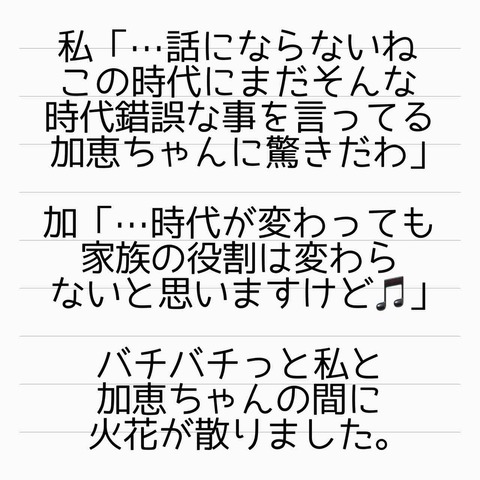 私「…話にならないね
この時代にまだそんな
時代錯誤な事を言ってる
加恵ちゃんに驚きだわ」
加「…時代が変わっても
家族の役割は変わら
ないと思いますけど🎵」
バチバチっと私と
加恵ちゃんの間に
火花が散りました。